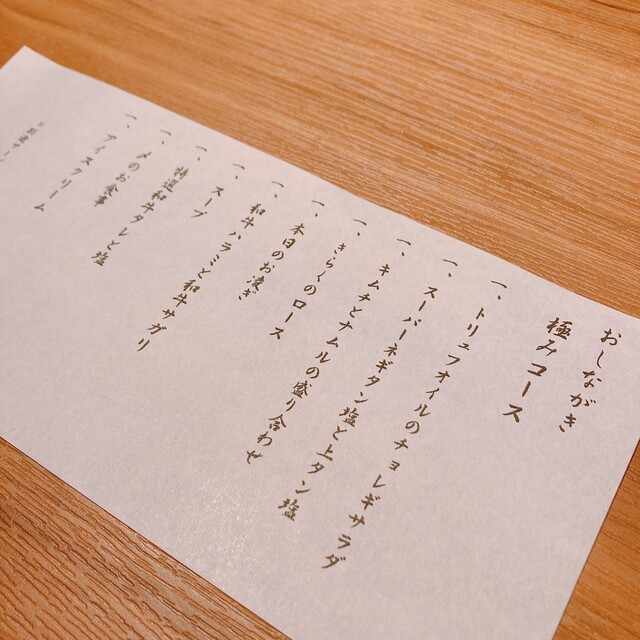 おしながき
極みコース
一、トリュフオイルのチョレギサラダ
一、スーパーネギタン塩と上タン塩
一、キムチとナムルの盛り合わせ
一、きらくのロース
一、本日のお凌ぎ
一、和牛ハラミと和牛サガリ
一、スープ
一、特選和牛タレと塩
一、〆のお食事
一、アイスクリーム